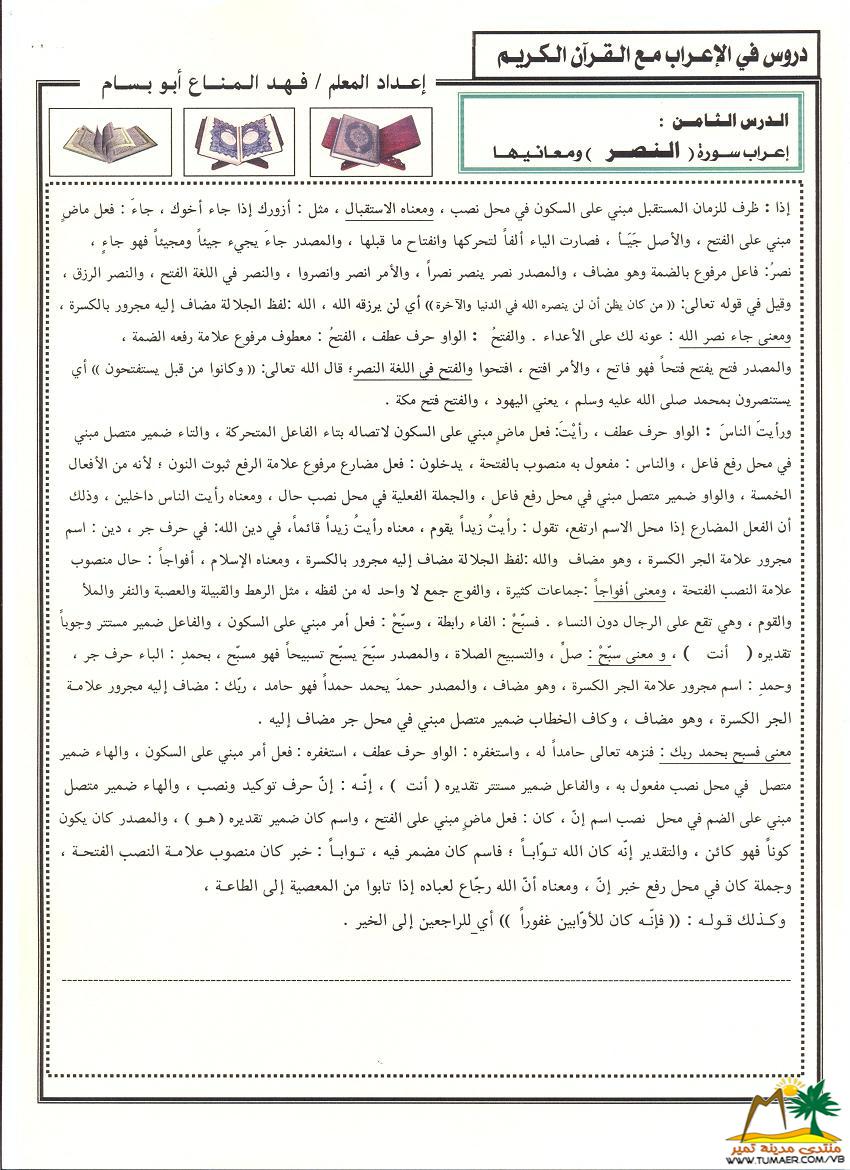 دروس في الإعراب مع القرآن الكريم
إعداد المعلم / فهد المناع أبو بسام
الدرس الثامن :
إعراب سورة ( النصر ) ومعانيها
إذا : ظرف للزمان المستقبل مبني على السكون في محل نصب ، ومعناه الاستقبال ، مثل : أزورك إذا جاء أخوك ، جاءَ : فعل ماضٍ
مبني على الفتح ، والأصل جَيَـأ ، فصارت الياء ألفاً لتحركها وانفتاح ما قبلها ، والمصدر جاءَ يجيء جيئاً ومجيئاً فهو جاءٍ ،
نصرُ: فاعل مرفوع بالضمة وهو مضاف ، والمصدر نصر ينصر نصراً ، والأمر انصر وانصروا ، والنصر في اللغة الفتح ، والنصر الرزق ،
وقيل في قوله تعالى: (( من كان يظن أن لن ينصره الله في الدنيا والآخرة )) أي لن يرزقه الله ، الله :لفظ الجلالة مضاف إليه مجرور بالكسرة ،
ومعنى جاء نصر الله : عونه لك على الأعداء . والفتحُ : الواو حرف عطف ، الفتحُ : معطوف مرفوع علامة رفعه الضمة ،
والمصدر فتح يفتح فتحاً فهو فاتح ، والأمر افتح ، افتحوا والفتح في اللغة النصر؛ قال الله تعالى: (( وكانوا من قبل يستفتحون )) أي
يستنصرون بمحمد صلى الله عليه وسلم ، يعني اليهود ، والفتح فتح مكة .
ورأيتَ الناسَ : الواو حرف عطف ، رأيْتَ: فعل ماضٍ مبني على السكون لاتصاله بتاء الفاعل المتحركة ، والتاء ضمير متصل مبني
في محل رفع فاعل ، والناس : مفعول به منصوب بالفتحة ، يدخلون : فعل مضارع مرفوع علامة الرفع ثبوت النون ؛ لأنه من الأفعال
الخمسة ، والواو ضمير متصل مبني في محل رفع فاعل ، والجملة الفعلية في محل نصب حال ، ومعناه رأيت الناس داخلين ، وذلك
أن الفعل المضارع إذا محل الاسم ارتفع، تقول : رأيتُ زيداً يقوم ، معناه رأيتُ زيداً قائماً، في دين الله: في حرف جر ، دين : اسم
مجرور علامة الجر الكسرة ، وهو مضاف والله :لفظ الجلالة مضاف إليه مجرور بالكسرة ، ومعناه الإسلام ، أفواجاً : حال منصوب
علامة النصب الفتحة ، ومعنى أفواجاً :جماعات كثيرة ، والفوج جمع لا واحد له من لفظه ، مثل الرهط والقبيلة والعصبة والنفر والملأ
والقوم ، وهي تقع على الرجال دون النساء . فسبّحْ : الفاء رابطة ، وسبّحْ : فعل أمر مبني على السكون ، والفاعل ضمير مستتر وجوباً
تقديره ( أنت ) ، و معنى سبّحْ : صلِّ ، والتسبيح الصلاة ، والمصدر سبّحَ يسبّح تسبيحاً فهو مسبّح ، بحمدِ : الباء حرف جر ،
وحمدِ : اسم مجرور علامة الجر الكسرة ، وهو مضاف ، والمصدر حمدَ يحمد حمداً فهو حامد ، ربّك : مضاف إليه مجرور علامة
الجر الكسرة ، وهو مضاف ، وكاف الخطاب ضمير متصل مبني في محل جر مضاف إليه .
معنى فسبح بحمد ربك : فنزهه تعالى حامداً له ، واستغفره : الواو حرف عطف ، استغفره : فعل أمر مبني على السكون ، والهاء ضمير
متصل في محل نصب مفعول به ، والفاعل ضمير مستتر تقديره ( أنت ) ، إنّـه : إنّ حرف توكيد ونصب ، والهاء ضمير متصل
مبني على الضم في محل نصب اسم إنّ ، كان : فعل ماضٍ مبني على الفتح ، واسم كان ضمير تقديره ( هـو ) ، والمصدر كان يكون
كوناً فهو كائن ، والتقدير إنّه كان الله توّاباً ؛ فاسم كان مضمر فيه ، تـواباً : خبر كان منصوب علامـة النصب الفتحـة ،
وجملة كان في محل رفع خبر إنّ ، ومعناه أنّ الله رجّاع لعباده إذا تابوا من المعصية إلى الطاعـة ،
وكـذلك قـولـه : (( فإنّـه كان للأوّابين غفوراً )) أي للراجعين إلى الخير .
منتدى مدينة تمير
WWW.TUMAER.COM/VB